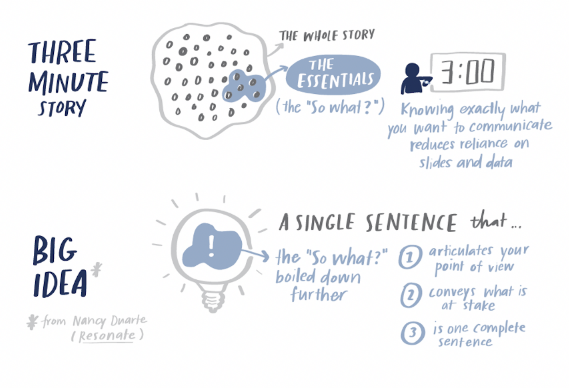 THREE
MINUTE
STORY
THE WHOLE STORY
THE
ESSENTIALS
(the "So what?")
3:00
Knowing exactly what
you want to communicate
reduces reliance on
slides and data
BIG
IDEA*
* from Nancy Duarte
(Resonate)
!
A SINGLE SENTENCE that...
the "So what?"
boiled down
further
1 articulates your
point of view
2 conveys what is
at stake
3 is one complete
sentence